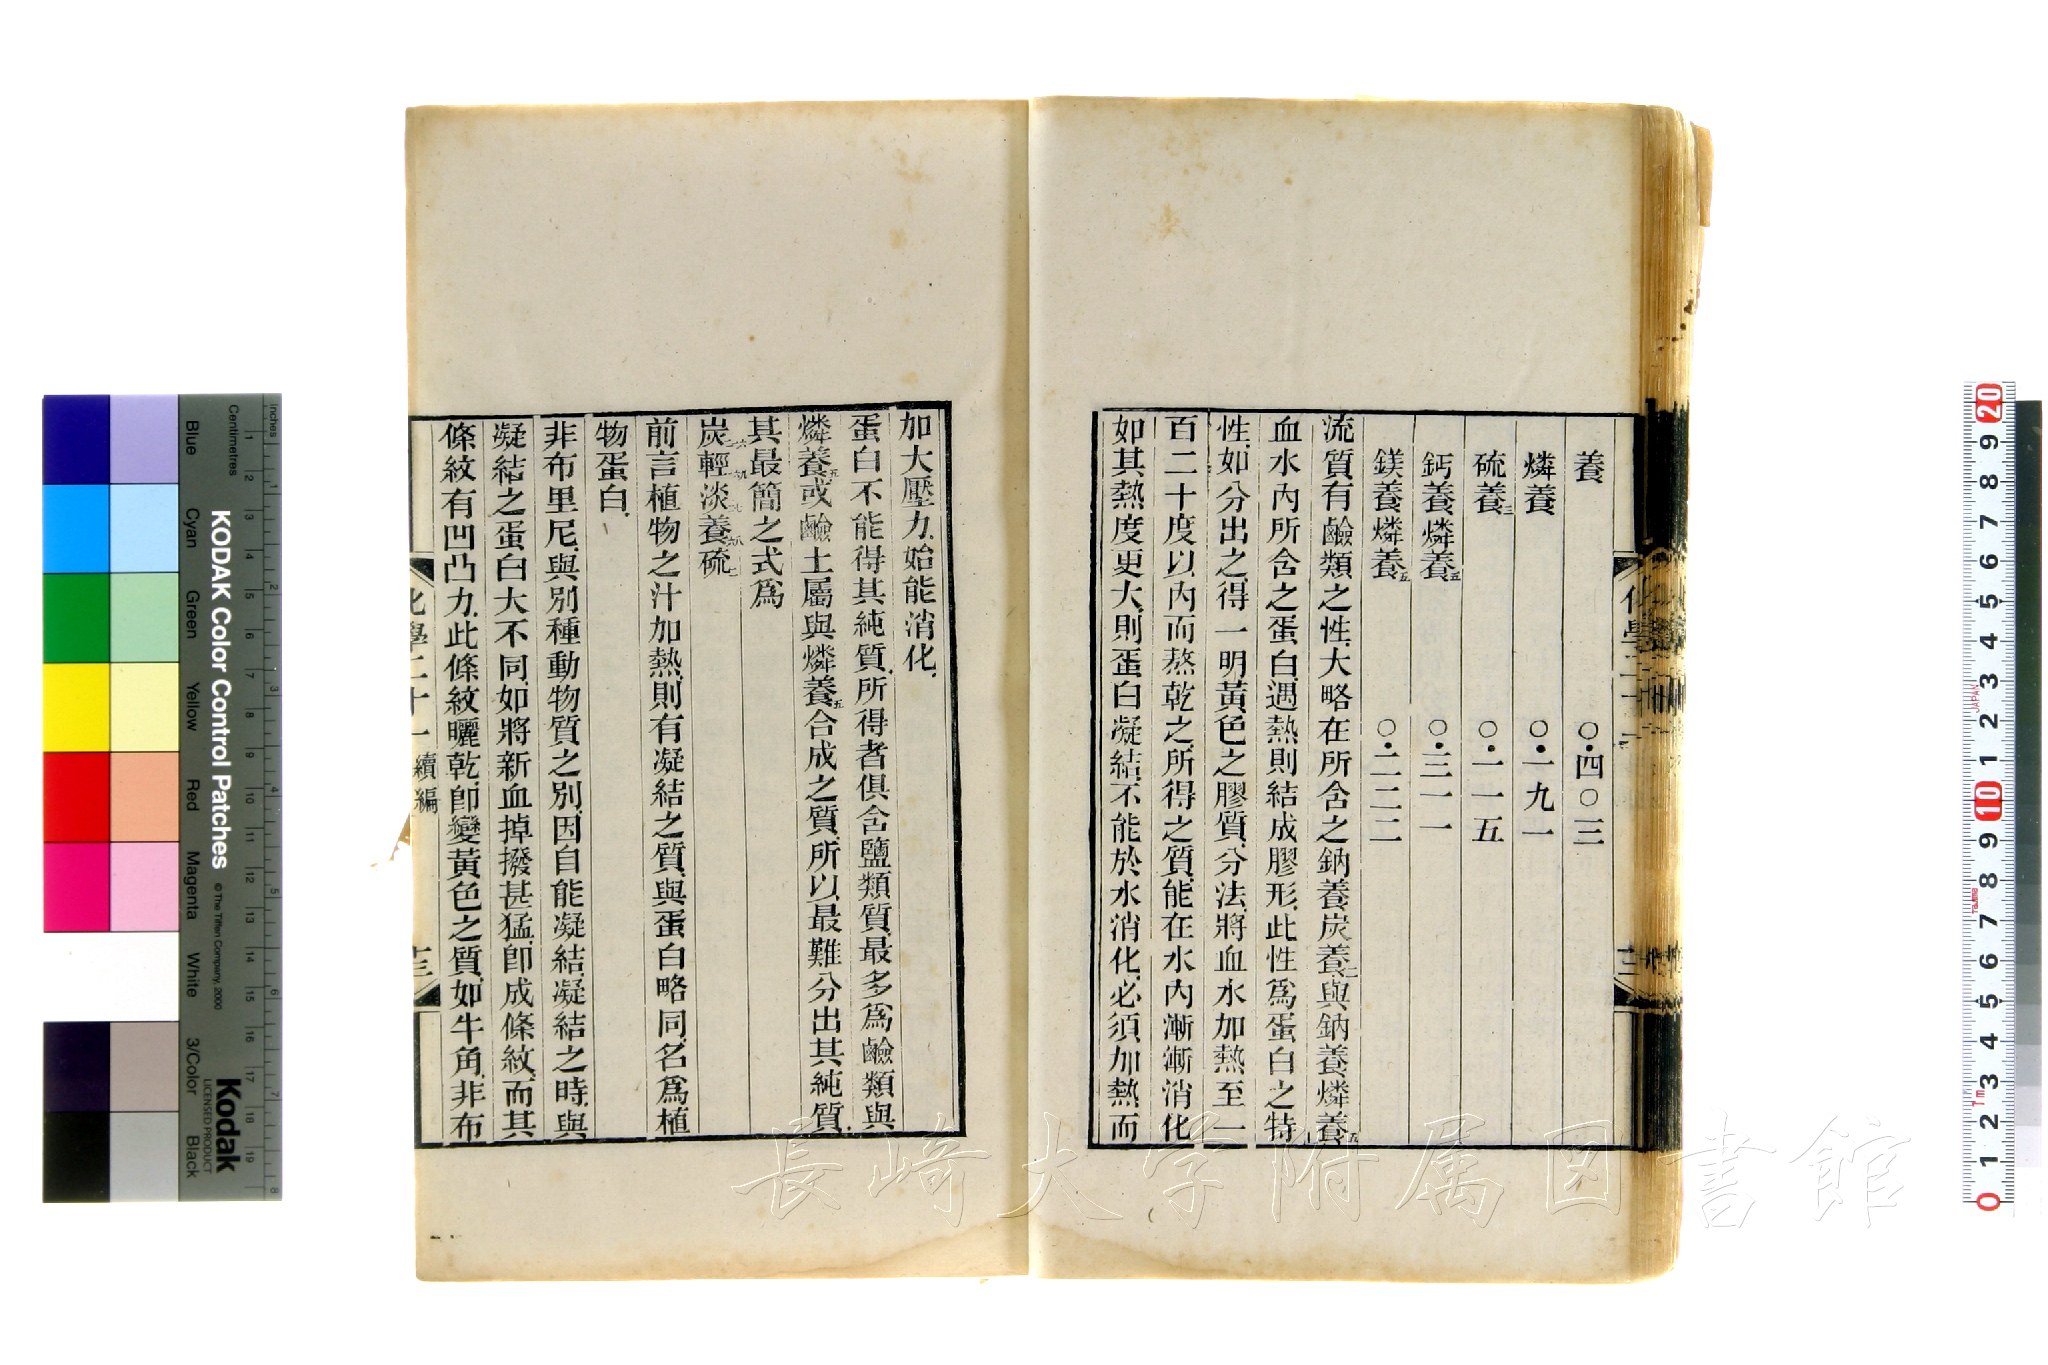 養　〇·四〇三
燐養　〇·一九一
硫養三　〇·一一五
鈣養燐養五　〇·三一一
鎂養燐養五　〇·二二二
流質有鹼類之性、大略在所含之鈉養炭養二與鈉養燐養五
血水內所含之蛋白、遇熱則結成膠形、此性為蛋白之特
性、如分出之、得一明黃色之膠質、分法、將血水加熱至一
百二十度以內而熬乾之、所得之質、能在水內漸漸消化
如其熱度更大、則蛋白凝結、不能於水消化、必須加熱而
加大壓力、始能消化、
蛋白不能得其純質、所得者俱含鹽類質、最多為鹼類與
燐養五或鹼土屬與燐養五合成之質、所以最難分出其純質、
其最簡之式為
炭輕淡養硫
前言植物之汁加熱、則有凝結之質、與蛋白略同、名為植
物蛋白、
非布里尼、與別種動物質之別、因自能凝結、凝結之時、與
凝結之蛋白大不同、如將新血掉撥甚猛、卽成條紋、而其
條紋有凹凸力、此條紋曬乾、卽變黃色之質、如牛角、非布
化學二十一 續編 十三
長崎大学附属図書館
KODAK Color Control Patches
© The Tiffen Company, 2000
Kodak
LICENSED PRODUCT
Inches
Centimetres
Blue
Cyan
Green
Yellow
Red
Magenta
White
3/Color
Black
1 2 3 4 5 6 7 8
1 2 3 4 5 6 7 8 9 10 11 12 13 14 15 16 17 18 19
0 1 2 3 4 5 6 7 8 9 10 1 2 3 4 5 6 7 8 9 20
JAPAN